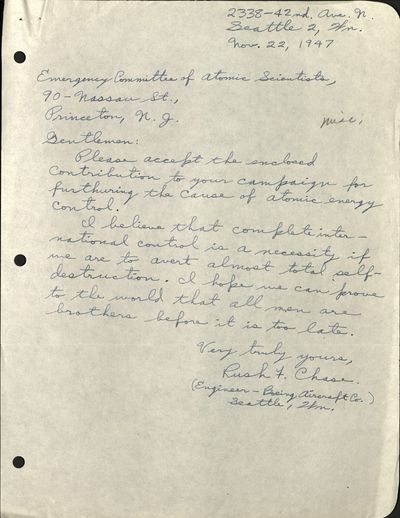 2338-42nd. Ave. N.
Seattle 2, Wn.
Nov. 22, 1947
Emergency Committee of Atomic Scientists,
90-Nassau St.,
Princeton, N. J.
misc.
Gentlemen:
Please accept the enclosed
contribution to your campaign for
furthuring the cause of atomic energy
control.
I believe that complete inter-
national control is a necessity if
we are to avert almost total self-
destruction. I hope we can prove
to the world that all men are
brothers before it is too late.
Very truly yours,
Rush F. Chase.
(Engineer-Boeing Aircraft Co.)
Seattle, Wn.